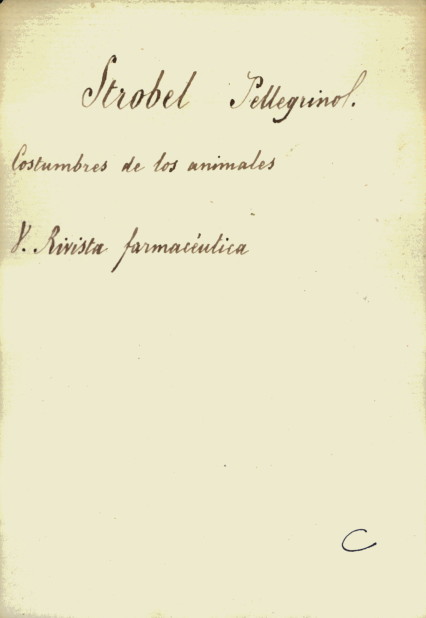 Strobel Pellegrino.
Costumbres de los animales
V. Rivista farmacéutica
C